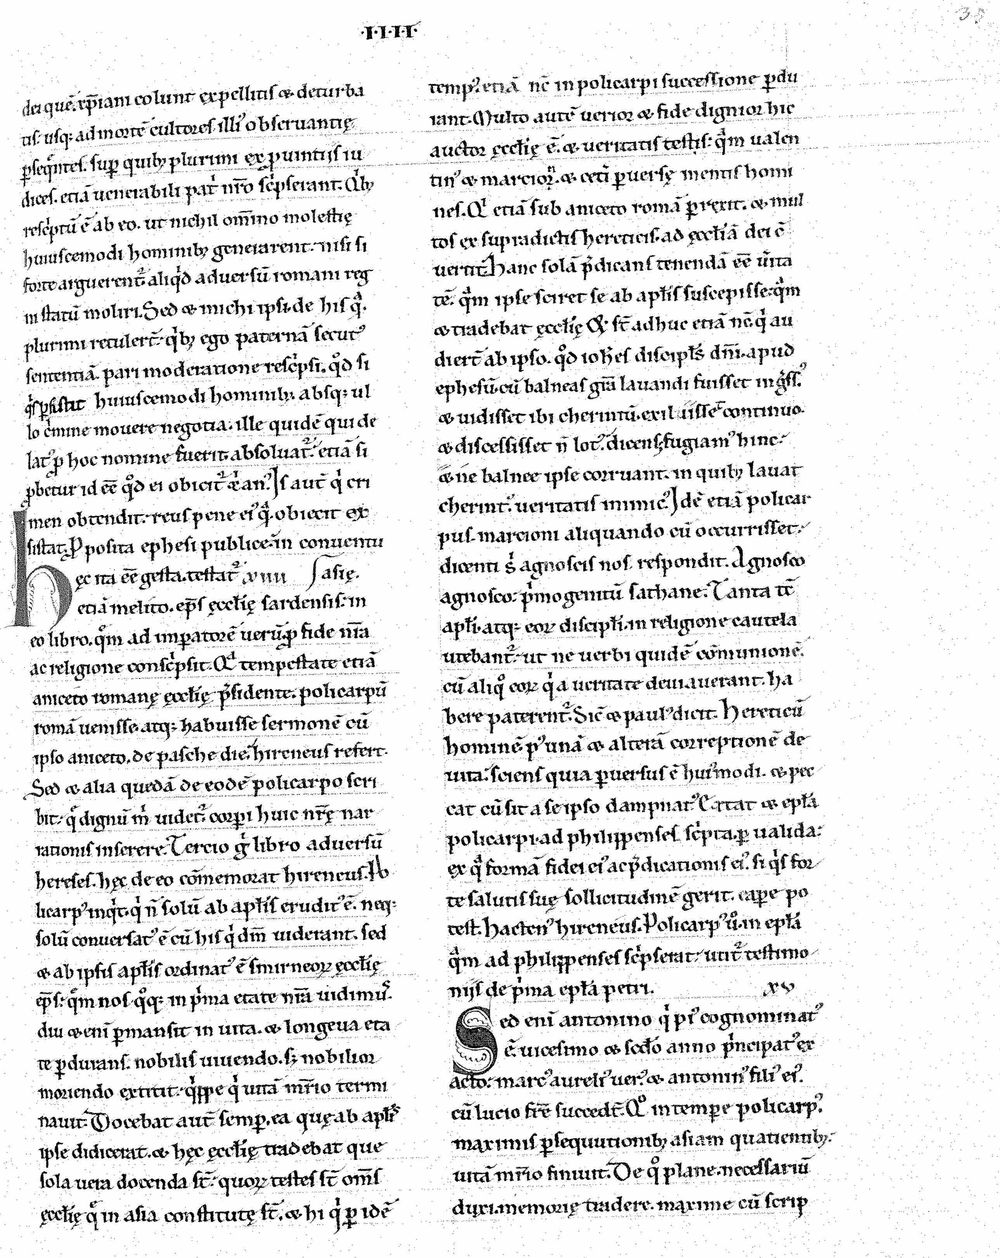 ·I·I·I·I·
35
dei quē xp̄iani colunt expellitis & deturba
tis. usq; ad mortē cultores illi' obseruantię
ꝑseq̄ntes. sup quib; plurimi ex ꝓuintiis iu
dices. etiā uenerabili pat̓ nr̄o sc̓pserant. Q̓b;
resc̓ptū ē ab eo. ut nichil om̄ino molestię
huiuscemodi hominib; generarent. nisi si
forte arguerent᷑ aliq̓d aduersū romani reg
ni statū moliri. Sed & michi ipsi de his q̓
plurimi retulert̄. q̓b; ego paternā secut'
sententiā. pari moderatione resc̓psi. q̓d si
q̓s ꝑsistit huiuscemodi hominib; absq; ul
lo c̓mine mouere negotia. ille quidē qui de
lat' ꝓ hoc nomine fuerit absoluat᷑. etiā si
ꝓbetur id eē q̓d ei obicit᷑ xp̄ian'. Is aut̄ q̓ cri
men obtendit. reus pene ei' q̓ obiecit ex
sistat. Pposita ephesi publice in conuentu
hęc ita eē gesta. testat᷑ XIIII asię.
etiā melito. ep̄s ęcclię sardensis. in
eo libro. q̄m ad imperatorē uerū ꝓ fide nr̄a
ac religione consc̓psit. Q̄ tempestate etiā
aniceto romanę ęcclię p̄sidente. policarpū
romā uenisse. atq; habuisse sermonē cū
ipso aniceto. de pasche die. hireneus refert.
Sed & alia quedā de eodē policarpo scri
bit. q̄ dignū m̄ uidet᷑ corpi huic nr̄ę nar
rationis inserere. Tercio g̓ libro aduersū
hereses. hęc de eo cōmemorat hireneus. Po
licarp' inq̓t. q̓ n̄ solū ab apl̄is erudit' ē. neq;
solū conuersat' ē cū his q̓ dn̄m uiderant. sed
& ab ipsis apl̄is ordinat' ē smirneoꝝ ęcclię
ep̄s. q̄m nos q̊q; in p̓ma etate nr̄a uidim'.
diu & eni ꝑmansit in uita. & longeua eta
te ꝑdurans. nobilis uiuendo. s; nobilior
moriendo extitit. q̓ppe q̓ uitā mr̄io termi
nauit. Docebat aut̄ semꝑ ea quę ab apl̄is
ipse didicerat. & hęc ęcclię tradebat que
sola uera docenda st̄. quoꝝ testes st̄ om̄s
ęcclię q̄ in asia constitutę st̄. & hi q̓ ꝑ idē
temp' etiā nc̄ in policarpi successione ꝑdu
rant. Multo autē uerior & fide dignior hic
auctor ęcclię ē. & ueritatis testis. q̄m ualen
tin' & marcion. & ceti ꝑuersę mentis homi
nes. Q̓ etiā sub aniceto romā ꝑrexit. & mul
tos ex supradictis hereticis. ad ęccliā dei c̄
uertit. Hanc solā p̄dicans tenendā eē u̓ita
tē. q̄m ipse sciret se ab apl̄is suscepisse. q̄m
& tradebat ęcclię. Et st̄ adhuc etiā nc̄ q̓ au
diert̄ ab ipso. q̓d ioh̄es discipl̄s dn̄i. apud
ephesū. cū balneas gr̄a lauandi fuisset ing̓ss'
& uidisset ibi cherintū. exiluisset continuo.
& discessisset n̄ lot'. dicens. fugiam' hinc.
& ne balnee ipse corruant. in quib; lauat
cherint'. ueritatis inimic'. Idē etiā policar
pus. marcioni aliquando cū occurrisset.
dicenti s̓ agnoscis nos. respondit. Agnosco
agnosco. p̓mogenitū sathane. Tanta tc̄
apl̄i. atq; eoꝝ discipl̄i. in religione cautela
utebant᷑. ut ne uerbi quidē cōmunionē
cū aliq̊ eoꝝ q̓ a ueritate deuiauerant. ha
bere paterent᷑. Sic̄ & paul' dicit. Hereticū
hominē p' unā & alterā correptionē de
uita. sciens quia ꝑuersus ē hui'modi. & pec
cat cū sit a se ipso dampnat'. Extat & epl̄a
policarpi. ad philippenses sc̓pta. ꝑualida.
ex q̓ formā fidei ei' ac p̄dicationis ei'. si q̓s for
te salutis suę sollicitudinē gerit. capere po
test. Hacten' hireneus. Policarp' u̓o. in epl̄a
q̄m ad philippenses sc̓pserat. utit᷑ testimo
niis de p̓ma epl̄a petri. XV
Sed eni antonino q̓ pi' cognominat'
ē. uicesimo & sc̄do anno p̓ncipat' ex
acto. marc' aureli' uer'. & antonin' fili' ei'.
cū lucio fr̄e succedt̄. Q̊ in tempore policarp'.
maximis ꝑsequutionib; asiam quatientib;.
uitā mr̄io finiuit. De q̊ plane. necessariū
duxi. memorię tradere. maxime cū scrip